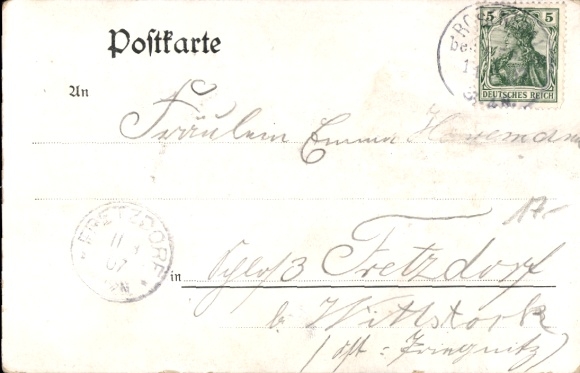 Postkarte
5 5
DEUTSCHES REICH
An
Fräulein Emma Havemann
17.-
FRETZDORF
11 3
07
in Schloß Fretzdorf
b. Wittstock
(Ost-Priegnitz)